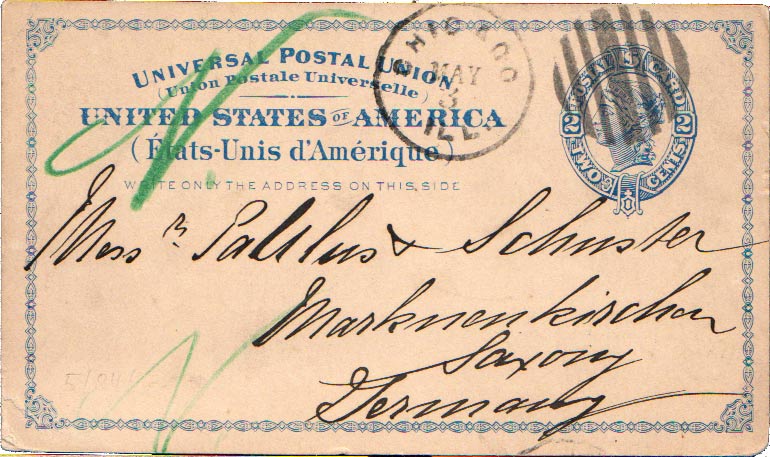 UNIVERSAL POSTAL UNION
(Union Postale Universelle)
UNITED STATES OF AMERICA
(États-Unis d'Amérique)
WRITE ONLY THE ADDRESS ON THIS SIDE
CHICAGO
MAY
3
ILL.
POSTAL CARD
2 2
TWO CENTS
Mess rs & Schuster
Markneukirchen
Saxony
Germany